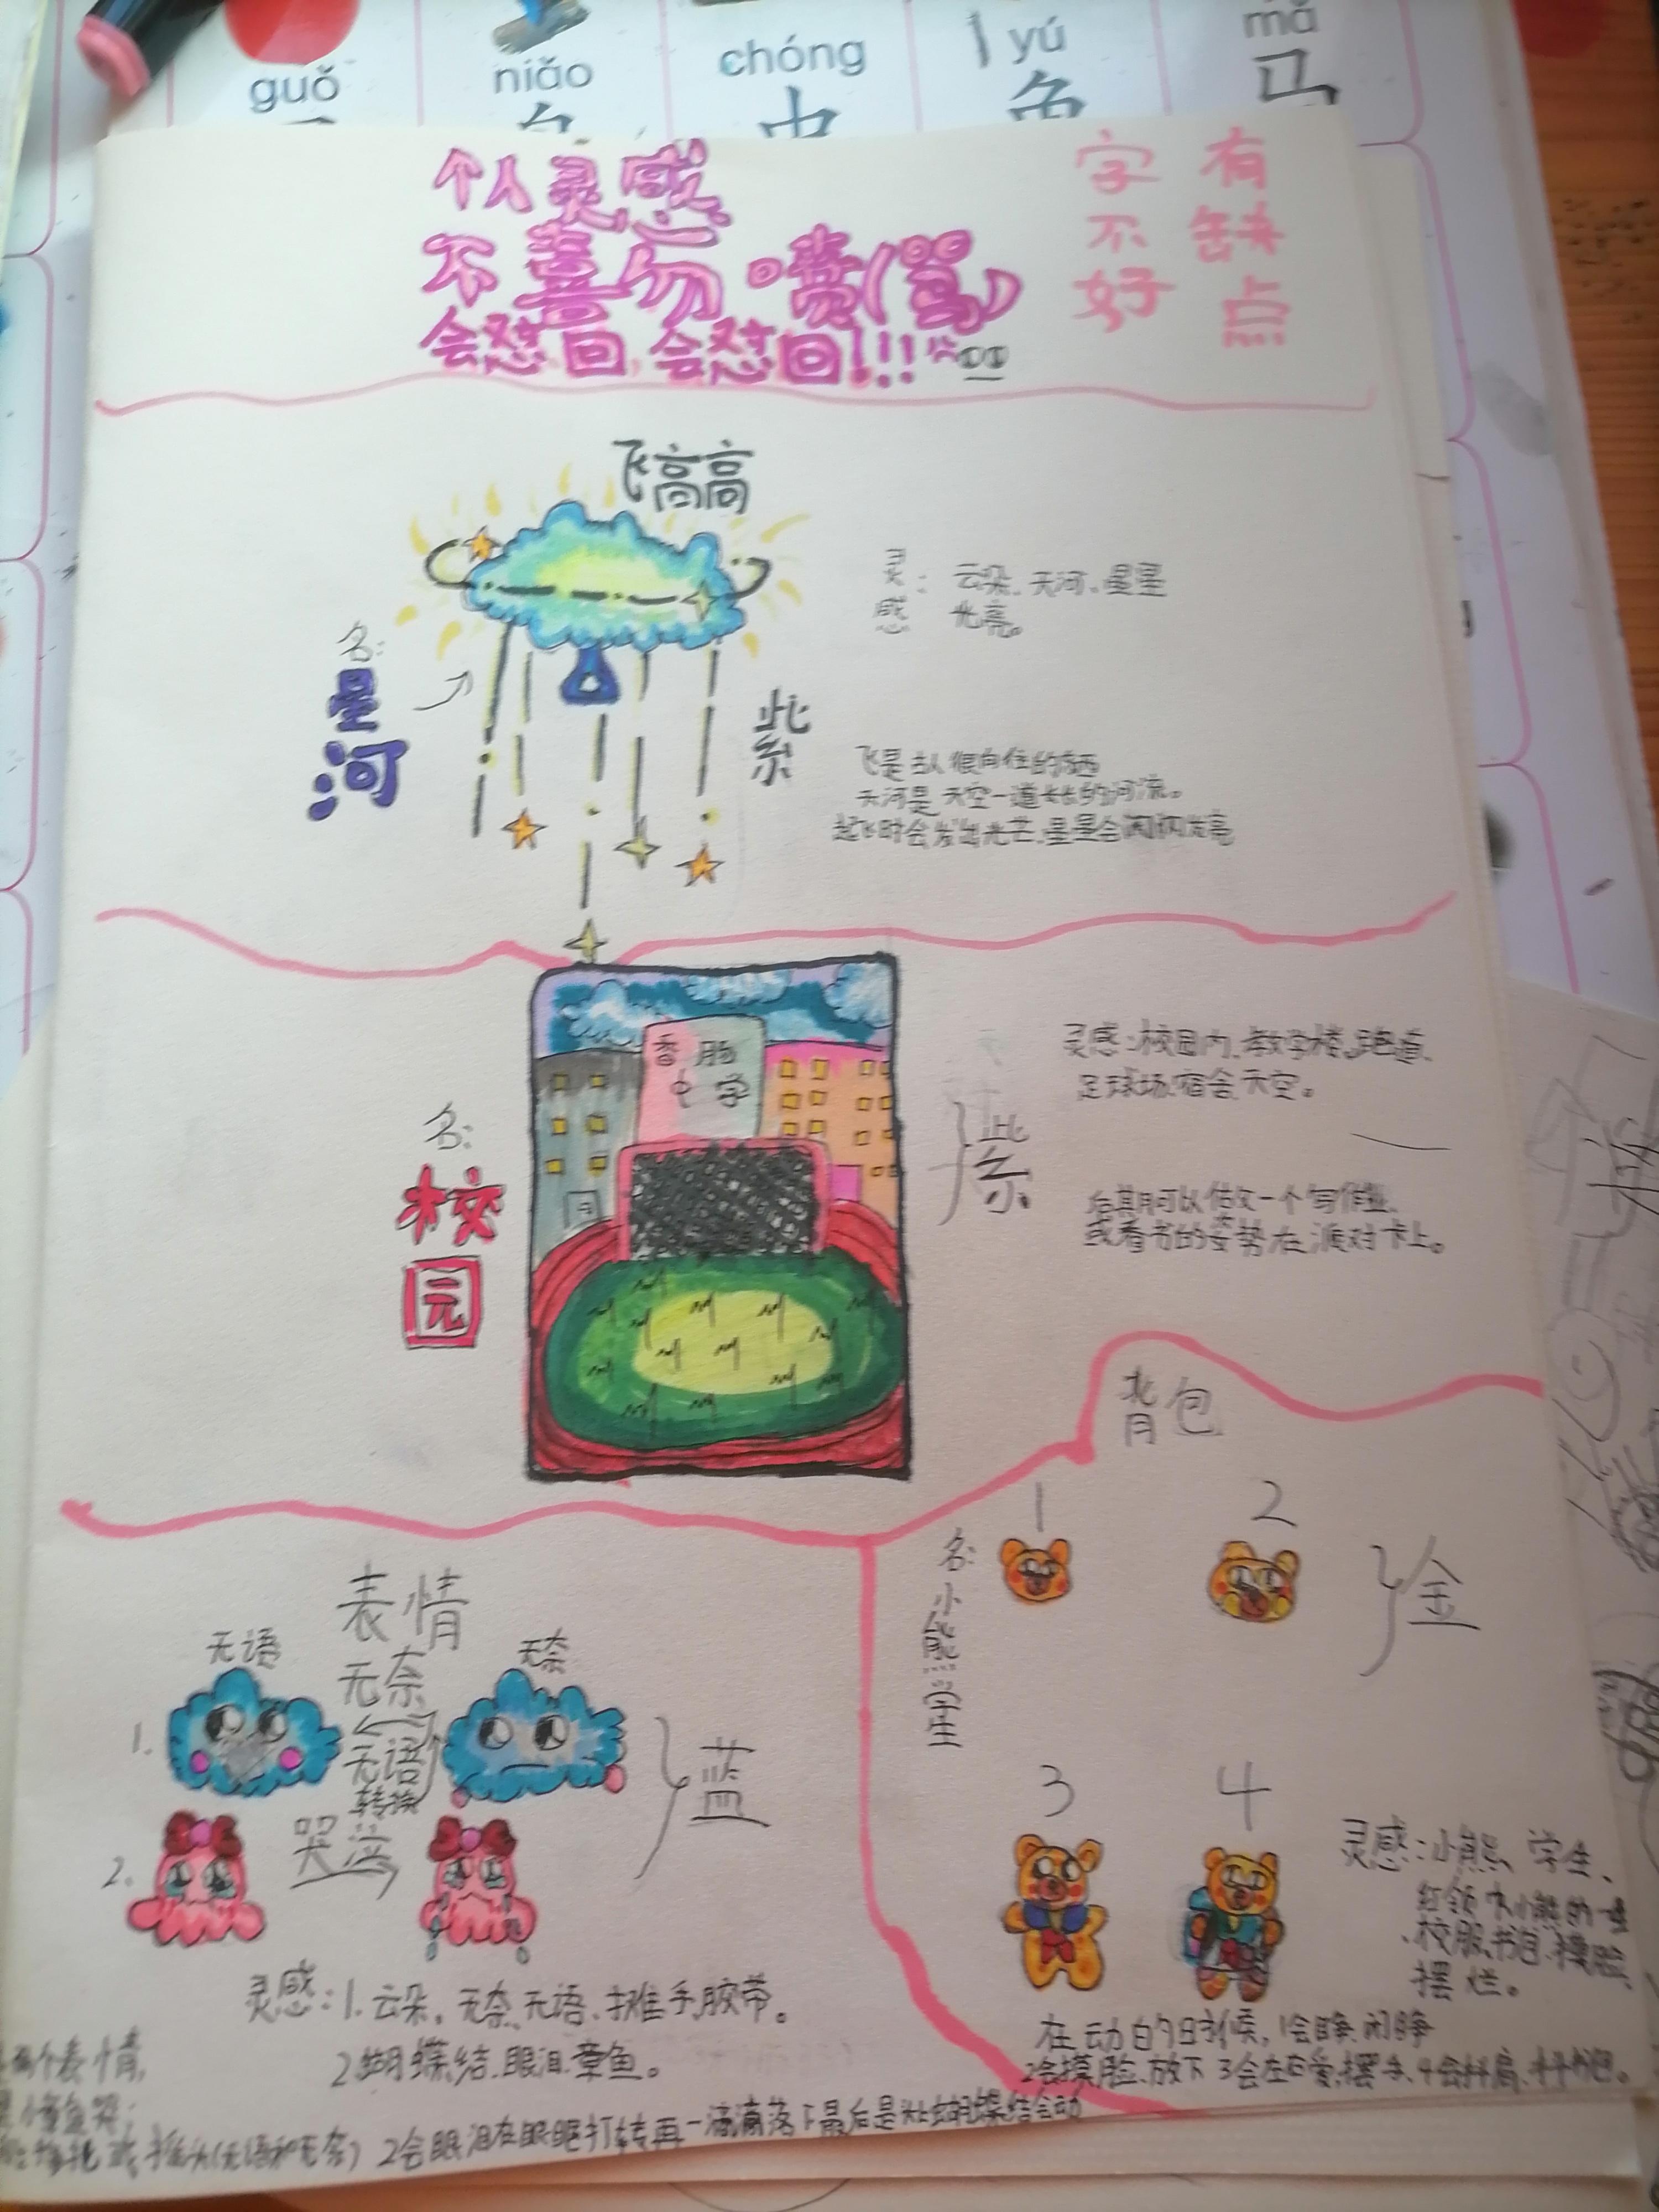 guǒ
niǎo
chóng
yú
mǎ
个人灵感
不喜勿喷(骂)
会怼回,会怼回!!!
字不好
有缺点
飞高高
名:
星河
灵感: 云朵、天河、星星
光亮。
紫
飞是古人很向往的东西
天河是天空一道长长的河流。
起飞时会发出光芒、星星会闪闪发亮
香肠
中学
名:
校园
紫
灵感:校园内、教学楼、跑道、
足球场、宿舍、天空。
后期可以做一个写作业、
或看书的姿势在派对卡上。
背包
1
2
名:小熊学生
金
3
4
灵感:小熊、学生、
红领巾小熊的一
校服、书包、摸脸、
摆烂。
在动的时候,1会睁、闭睁
2会摸脸、放下 3会左右
表情
无语
无奈
无奈
1.
无语
转换
蓝
2.
哭泣
灵感:1.云朵、无奈、无语、摊手、胶带。
2蝴蝶结、眼泪、章鱼。
两个表情,
(无语和无奈) 2会眼泪在眼眶打转再一滴滴落下最后是头上蝴蝶结会动